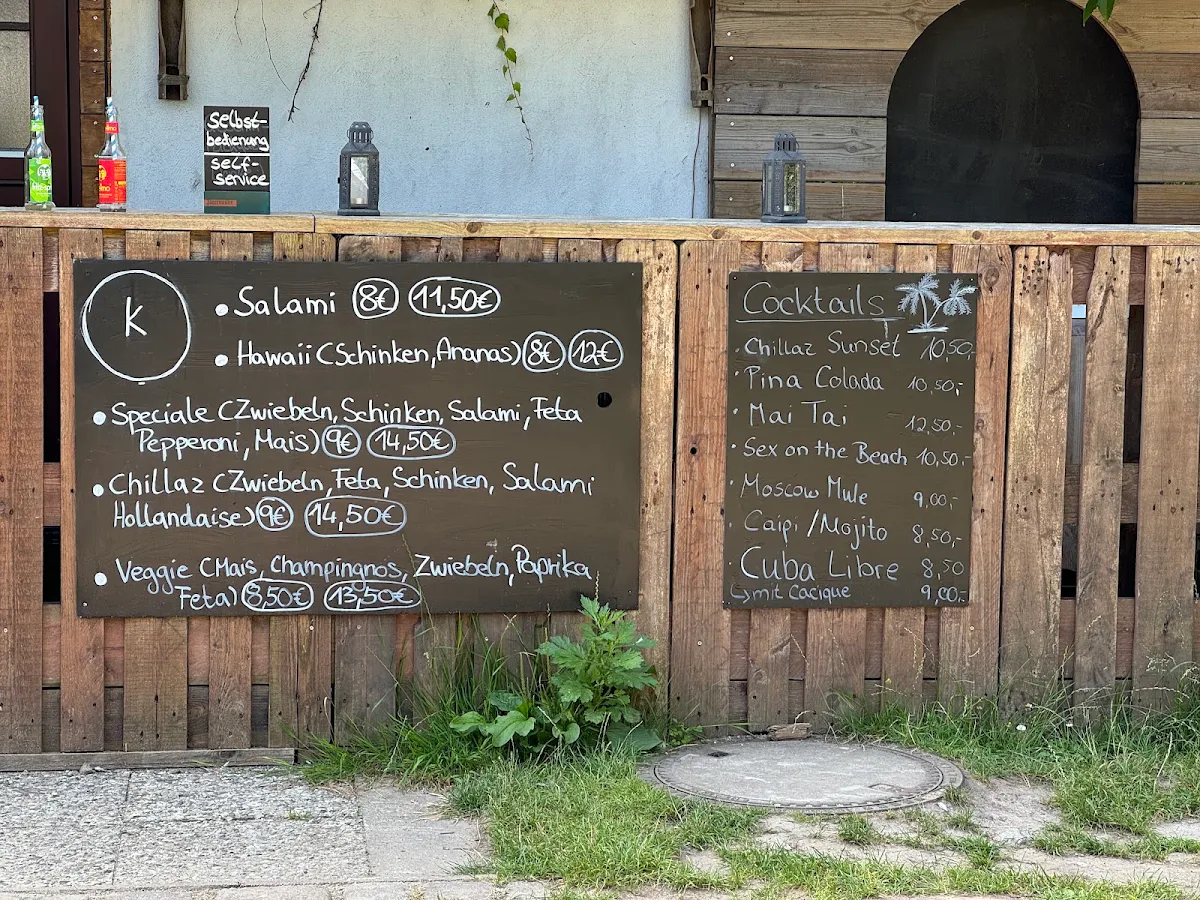 Selbst-
bedienung
self-
service
K
• Salami 8€ 11,50€
• Hawaii (Schinken, Ananas) 8€ 12€
• Speciale (Zwiebeln, Schinken, Salami, Feta
Pepperoni, Mais) 9€ 14,50€
• Chillaz (Zwiebeln, Feta, Schinken, Salami
Hollandaise) 9€ 14,50€
• Veggie (Mais, Champingnos, Zwiebeln, Paprika
Feta) 8,50€ 13,50€
Cocktails
· Chillaz Sunset 10,50,-
· Pina Colada 10,50,-
· Mai Tai 12,50,-
· Sex on the Beach 10,50,-
· Moscow Mule 9,00,-
· Caipi / Mojito 8,50,-
Cuba Libre 8,50
↳ mit Cacique 9,00,-